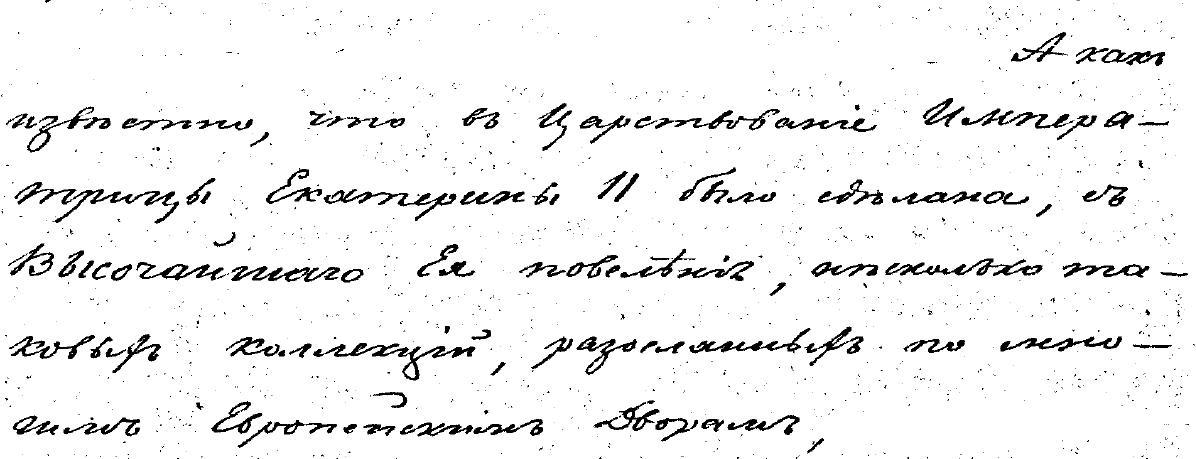 А какъ
извѣстно, что въ Царствованіе Импера-
трицы Екатерины II было сдѣлано, съ
Высочайшаго Ея повелѣнія, нѣсколько та-
ковыхъ коллекцій, разосланныхъ по мно-
гимъ Европейскимъ Дворамъ,